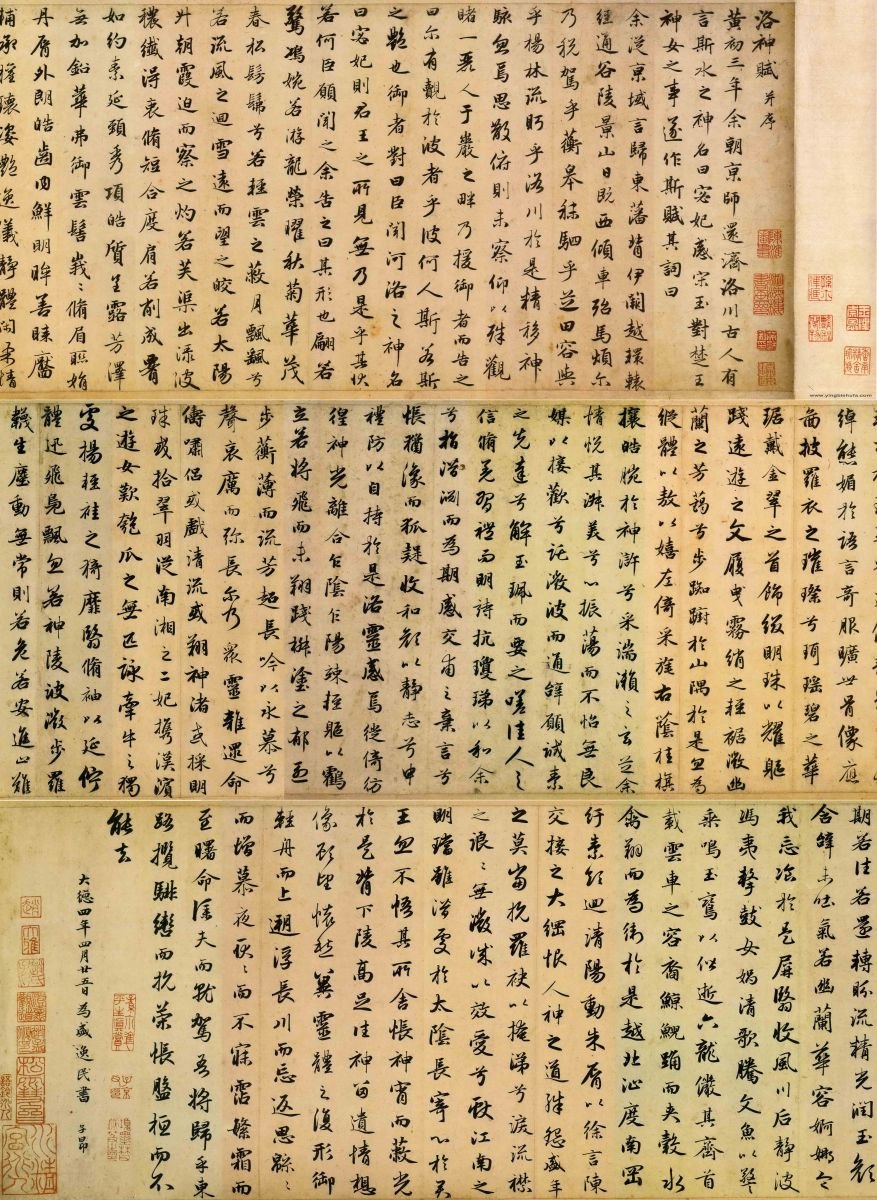 洛神賦 并序
黃初三年余朝京師還濟洛川古人有
言斯水之神名曰宓妃感宋玉對楚王
神女之事遂作斯賦其詞曰
余從京域言歸東藩背伊闕越轘轅
經通谷陵景山日既西傾車殆馬煩爾
乃稅駕乎蘅皋秣駟乎芝田容與
乎楊林流眄乎洛川於是精移神
駭忽焉思散俯則未察仰以殊觀
睹一麗人于巖之畔乃援御者而告之
曰爾有觀於彼者乎彼何人斯若斯
之艷也御者對曰臣聞河洛之神名
曰宓妃則君王之所見無乃是乎其狀
若何臣願聞之余告之曰其形也翩若
驚鴻婉若游龍榮曜秋菊華茂
春松髣髴兮若輕雲之蔽月飄颻兮
若流風之迴雪遠而望之皎若太陽
升朝霞迫而察之灼若芙蕖出淥波
穠纖得衷脩短合度肩若削成腰
如約素延頸秀項皓質呈露芳澤
無加鉛華弗御雲髻峩峩脩眉聯娟
丹脣外朗皓齒內鮮明眸善睞靨
輔承權瓌姿艷逸儀靜體閑柔情
綽態媚於語言奇服曠世骨像應
圖披羅衣之璀璨兮珥瑤碧之華
琚戴金翠之首飾綴明珠以耀軀
踐遠遊之文履曳霧綃之輕裾微幽
蘭之芳藹兮步踟躕於山隅於是忽焉
縱體以敖以嬉左倚采旄右蔭桂旗
攘皓腕於神滸兮采湍瀨之玄芝余
情悅其淑美兮心振蕩而不怡無良
媒以接歡兮託微波而通辭願誠素
之先達兮解玉珮而要之嗟佳人之
信脩羌習禮而明詩抗瓊珶以和余
兮指潛淵而為期感交甫之棄言兮
悵猶豫而狐疑收和顏以靜志兮申
禮防以自持於是洛靈感焉徙倚彷
徨神光離合乍陰乍陽竦輕軀以鶴
立若將飛而未翔踐椒塗之郁烈
步蘅薄而流芳超長吟以永慕兮
聲哀厲而彌長爾乃眾靈雜遝命
儔嘯侶或戲清流或翔神渚或採明
珠或拾翠羽從南湘之二妃攜漢濱
之遊女歎匏瓜之無匹詠牽牛之獨
處揚輕袿之猗靡翳脩袖以延佇
體迅飛鳧飄忽若神陵波微步羅
襪生塵動無常則若危若安進止難
期若往若還轉眄流精光潤玉顏
含辭未吐氣若幽蘭華容婀娜令
我忘飡於是屏翳收風川后靜波
馮夷擊鼓女媧清歌騰文魚以警
乘鳴玉鸞以偕逝六龍儼其齊首
載雲車之容裔鯨鯢踊而夾轂水
禽翔而為衛於是越北沚度南岡
紆素領迴清陽動朱脣以徐言陳
交接之大綱恨人神之道殊怨盛年
之莫當抗羅袂以掩涕兮淚流襟
之浪浪無微情以效愛兮獻江南之
明璫雖潛處於太陰長寄心於君
王忽不悟其所舍悵神宵而蔽光
於是背下陵高足往神留遺情想
像顧望懷愁冀靈體之復形御
輕舟而上遡浮長川而忘返思緜緜
而增慕夜耿耿而不寐霑繁霜而
至曙命僕夫而就駕吾將歸乎東
路攬騑轡而抗策悵盤桓而不
能去
大德四年四月廿五日為盛逸民書 子昂
www.yingbishufa.com